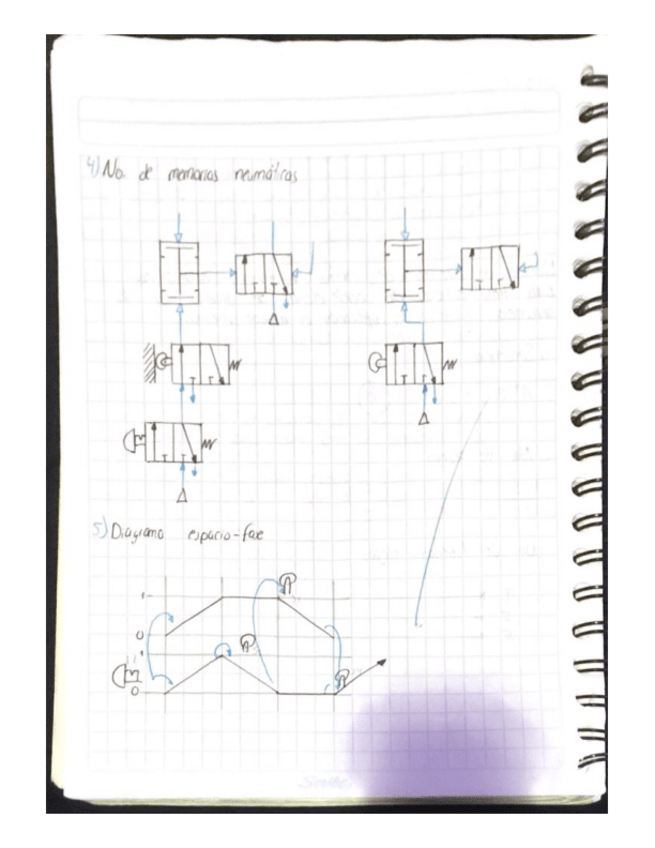 4) No. de memorias neumáticas
5) Diagrama espacio-fase
1
0
1
0